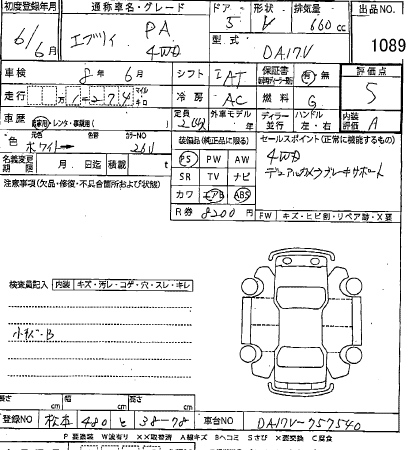 初度登録年月 通称車名・グレード ドア 形状 排気量 出品NO
6/6月 エブリィ PA 4WD 5 V 660cc 1089
型式 DA17V
車検 8年6月 シフト IAT 保証書 有・無 評価点 5
走行 1274 マイル キロ 冷房 AC 燃料 G 内装評価 A
車歴 自家用・レンタ・事業用 定員 外車モデル 年 ディーラー 並行 ハンドル 左・右
色 元色 ホワイト 色替 カラーNO 26U
名義変更期限 月 日迄 積載 t
装備品(純正品に限る) セールスポイント(正常に機能するもの)
PS PW AW 4WD
SR TV ナビ デュアルカメラブレーキサポート
カワ エアB ABS
R券 8200円 FW キズ・ヒビ割・リペア跡・X要
注意事項(欠品・修復・不具合箇所および状態)
検査員記入 内装 キズ・汚レ・コゲ・穴・スレ・キレ
小キズ・B
長さ cm 幅 cm 高さ cm
登録NO 松本 480 と 38-78 車台NO DA17V-757540
P要塗装 W波有り XX取替済 A線キズ Bヘコミ Sさび X要交換 C腐食